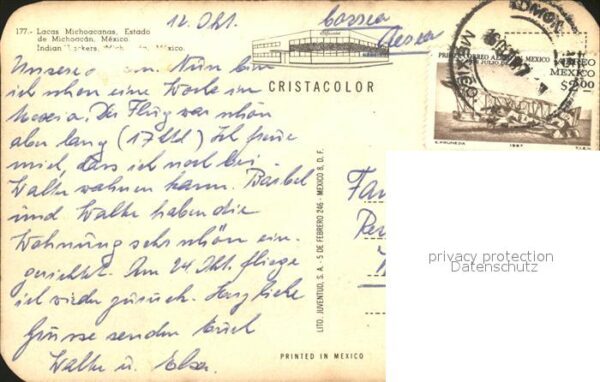 177.- Lacas Michoacanas, Estado
de Michoacán, México.
Indian Lackers, Michoacán, México.
12. Okt.
Correo
Aereo
CRISTACOLOR
PRIMER CORREO AEREO
DE JULIO
MEXICO
AEREO
MEXICO
$2.00
E. PRUNEDA
1967
T.I.E.V.
MEXICO
Nun bin
ich schon eine Woche in
Mexico. Der Flug war schön
aber lang (17 Std) Ich freue
mich, dass ich noch bei
Walter wohnen kann. Bärbel
und Walter haben die
Wohnung sehr schön ein-
gerichtet. Am 24. Okt. fliege
ich wieder zurück. Herzliche
Grüsse senden Euch
Walter u. Elsa
LITO. JUVENTUD, S. A. - 5 DE FEBRERO 246 - MEXICO 8, D. F.
PRINTED IN MEXICO
privacy protection
Datenschutz